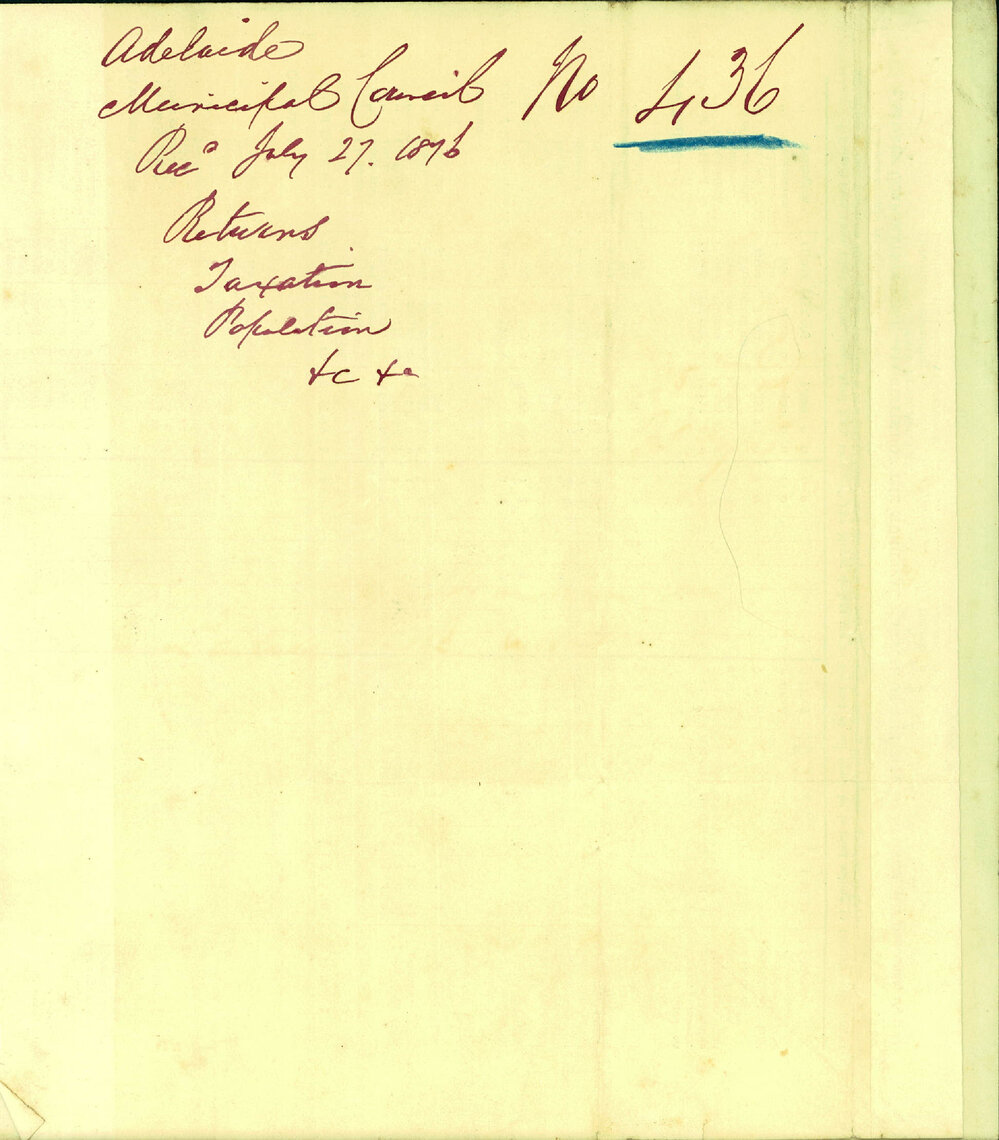 Adelaide
Municipal Council No 436
Recd July 27. 1876
Returns
Taxation
Population
&c &c